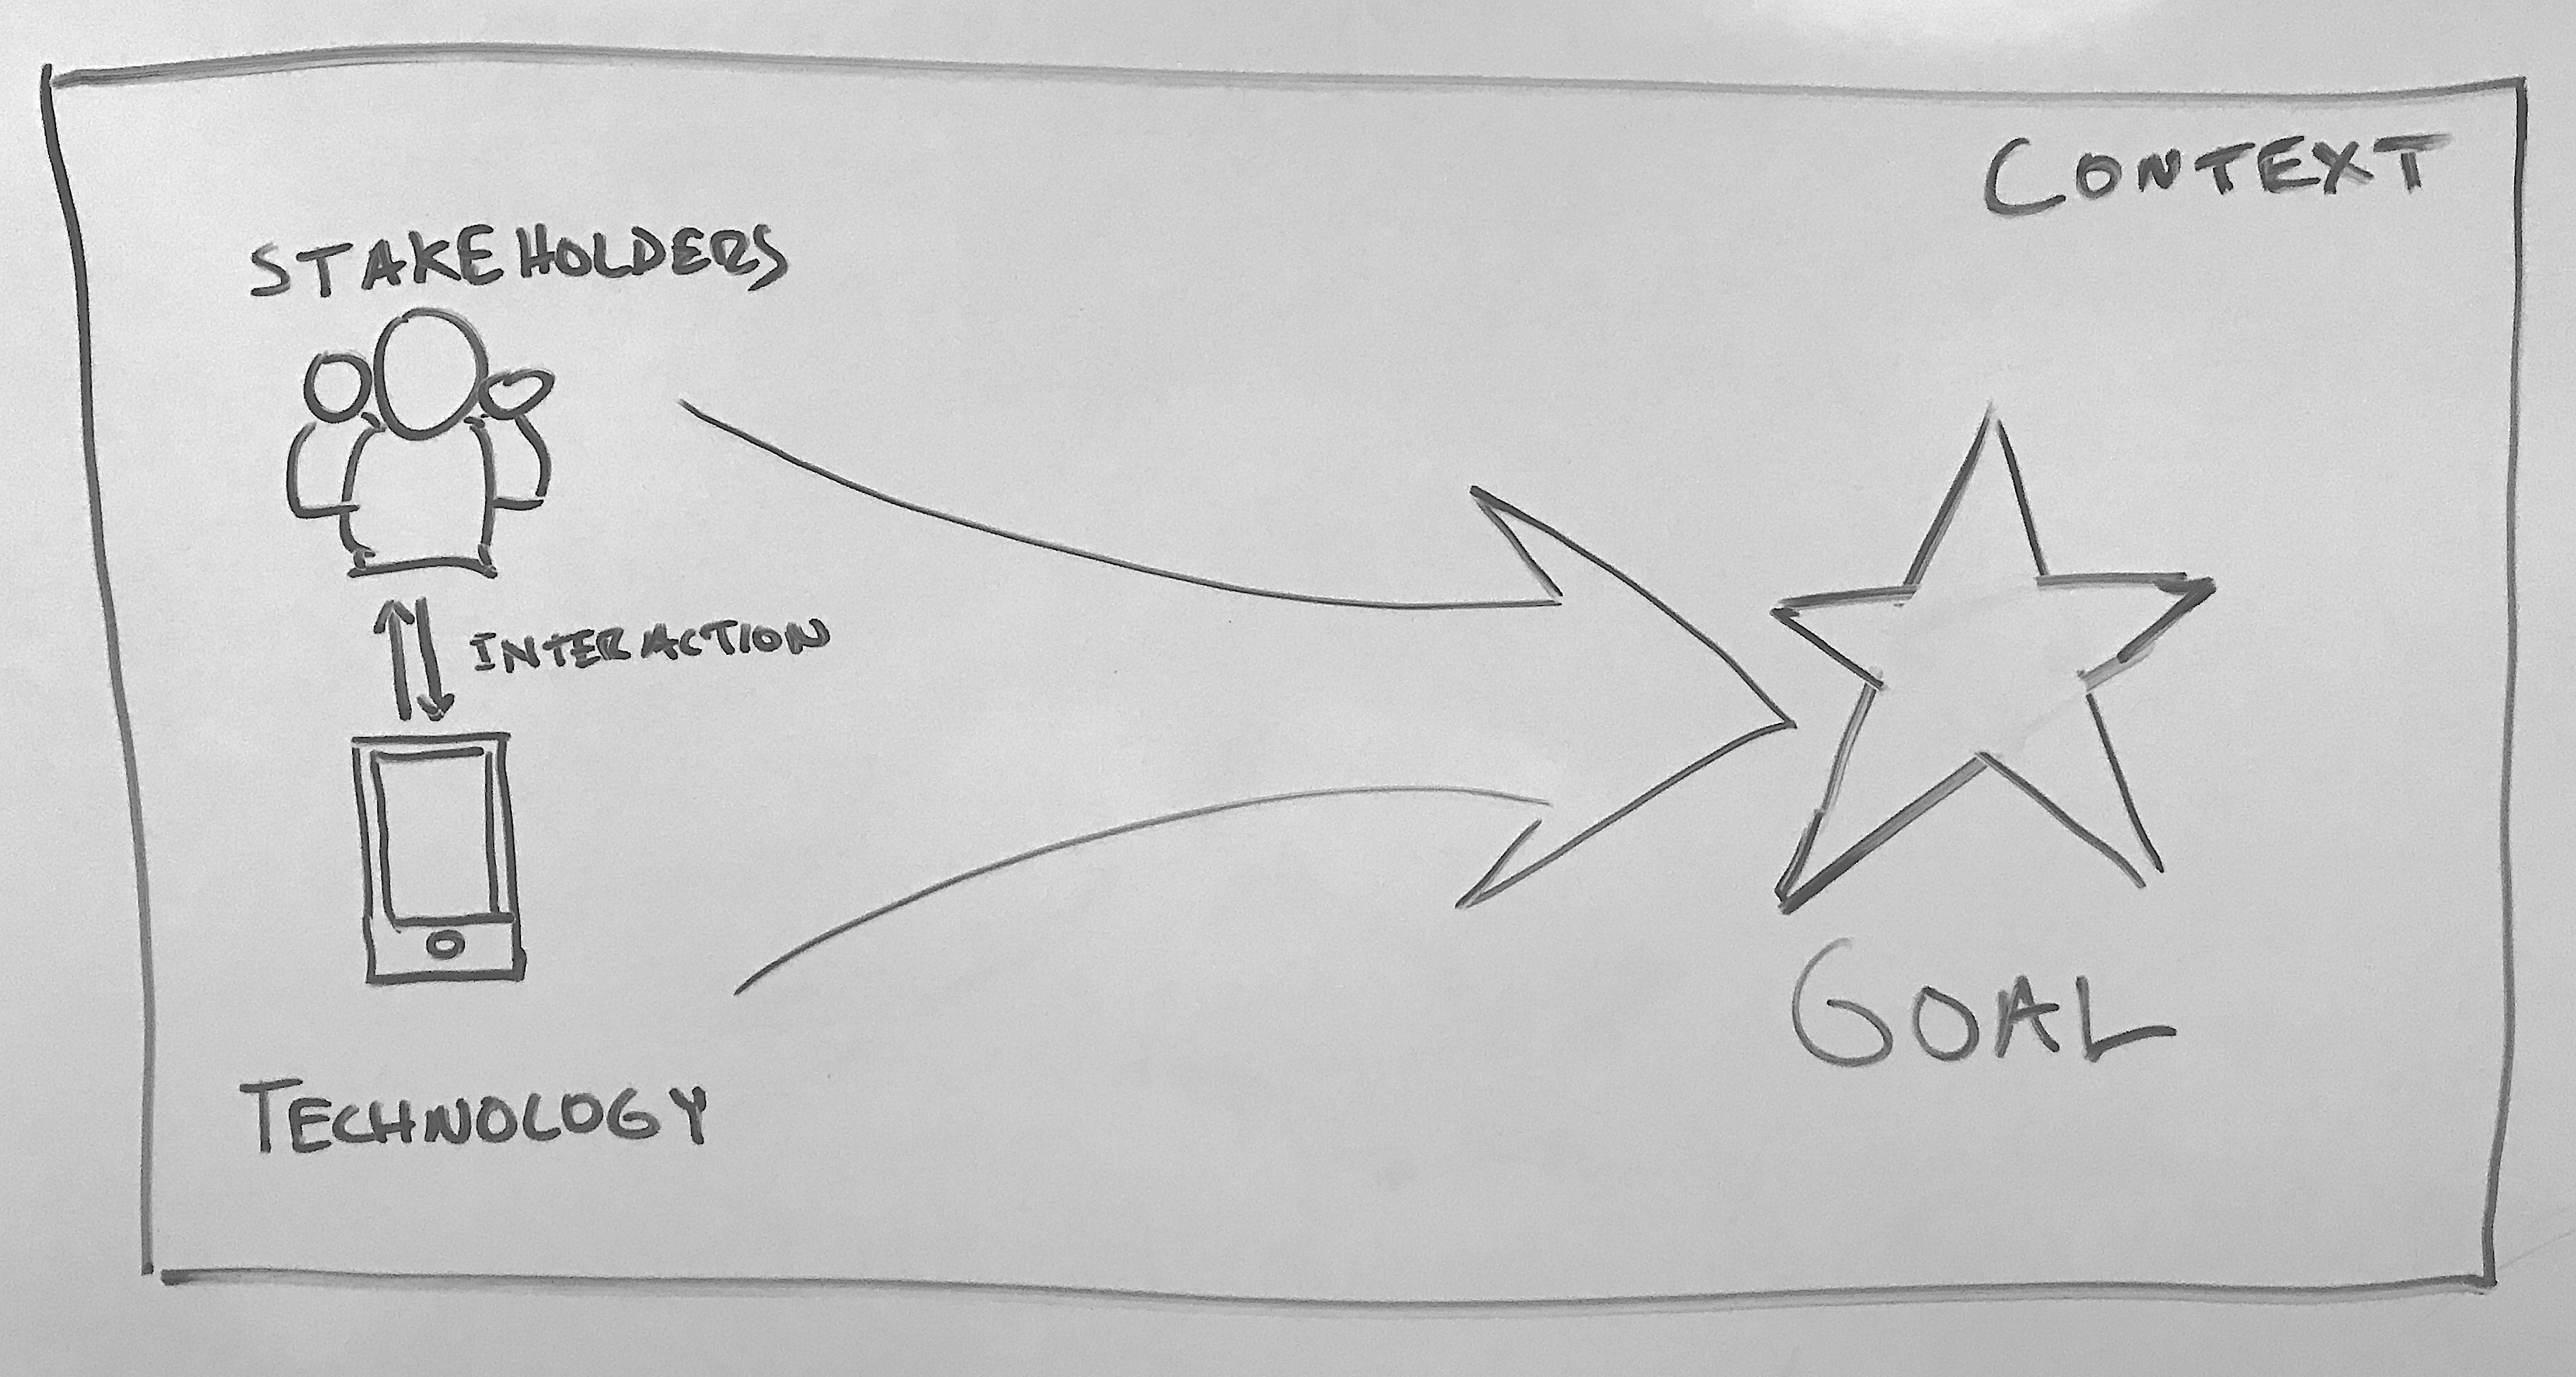 CONTEXT
STAKEHOLDERS
INTERACTION
GOAL
TECHNOLOGY